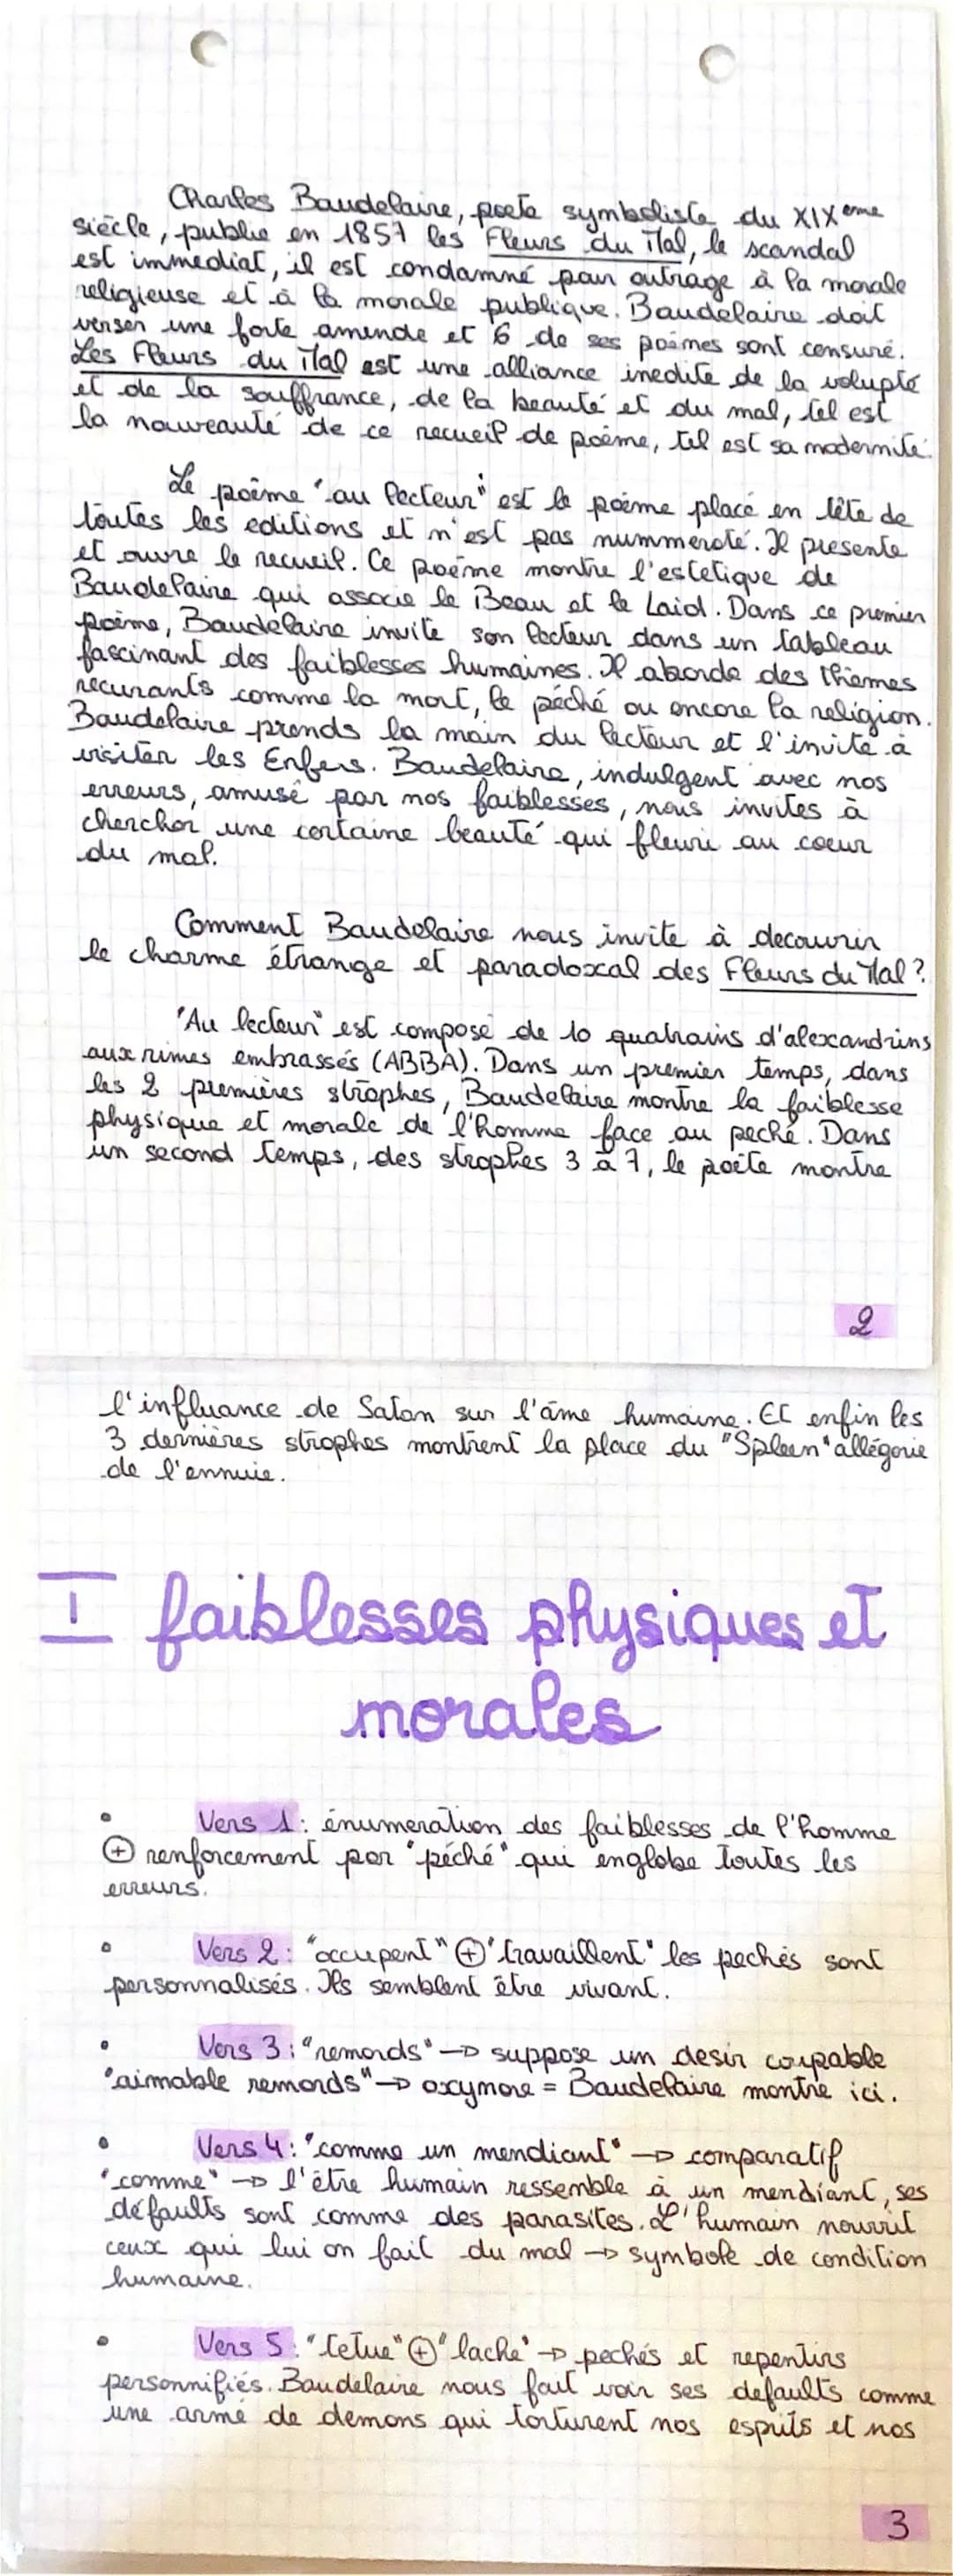 Charles Baudelaire, poete symboliste du XIXeme
siècle, publie en 1857 les Fleurs du Mal, le scandal
est immediat, il est condamné pour outrage à la morale
religieuse et à la morale publique. Baudelaire doit
verser une forte amende et 6 de ses poèmes sont censuré.
Les Fleurs du Mal est une alliance inedite de la volupté
et de la souffrance, de la beauté et du mal, tel est
la nouveauté de ce recueil de poème, tel est sa modernité.
Le poème "au lecteur" est le poème placé en tête de
toutes les editions et n'est pas nummeroté. Il presente
et ouvre le recueil. Ce poème montre l'estetique de
Baudelaire qui associe le Beau et le Laid. Dans ce premier
poème, Baudelaire invite son lecteur dans un tableau
fascinant des faiblesses humaines. Il aborde des thèmes
recurants comme la mort, le péché ou encore la religion.
Baudelaire prends la main du lecteur et l'invite à
visiter les Enfers. Baudelaire, indulgent avec nos
erreurs, amusé par nos faiblesses, nous invites à
chercher une certaine beauté qui fleuri au coeur
du mal.
Comment Baudelaire nous invite à decouvrir
le charme étrange et paradoxal des Fleurs du Mal ?
"Au lecteur" est composé de 10 quatrains d'alexandrins
aux rimes embrassés (ABBA). Dans un premier temps, dans
les 2 premières strophes, Baudelaire montre la faiblesse
physique et morale de l'homme face au peché. Dans
un second temps, des strophes 3 à 7, le poète montre
2
l'influance de Satan sur l'âme humaine. Et enfin les
3 dernières strophes montrent la place du "Spleen" allégorie
de l'ennuie.
I faiblesses physiques et
morales
• Vers 1 : énumeration des faiblesses de l'homme
⊕ renforcement par "péché" qui englobe toutes les
erreurs.
• Vers 2 : "occupent" ⊕ "travaillent" les pechés sont
personnalisés. Ils semblent être vivant.
• Vers 3 : "remords" → suppose un desir coupable
"aimable remords" → oxymore = Baudelaire montre ici.
• Vers 4 : "comme un mendiant" → comparatif
"comme" → l'être humain ressemble à un mendiant, ses
défaults sont comme des parasites. L'humain nourrit
ceux qui lui on fait du mal → symbole de condition
humaine.
• Vers 5 : "tetue" ⊕ "lache" → pechés et repentirs
personnifiés. Baudelaire nous fait voir ses defaults comme
une armé de demons qui torturent nos esprits et nos
3